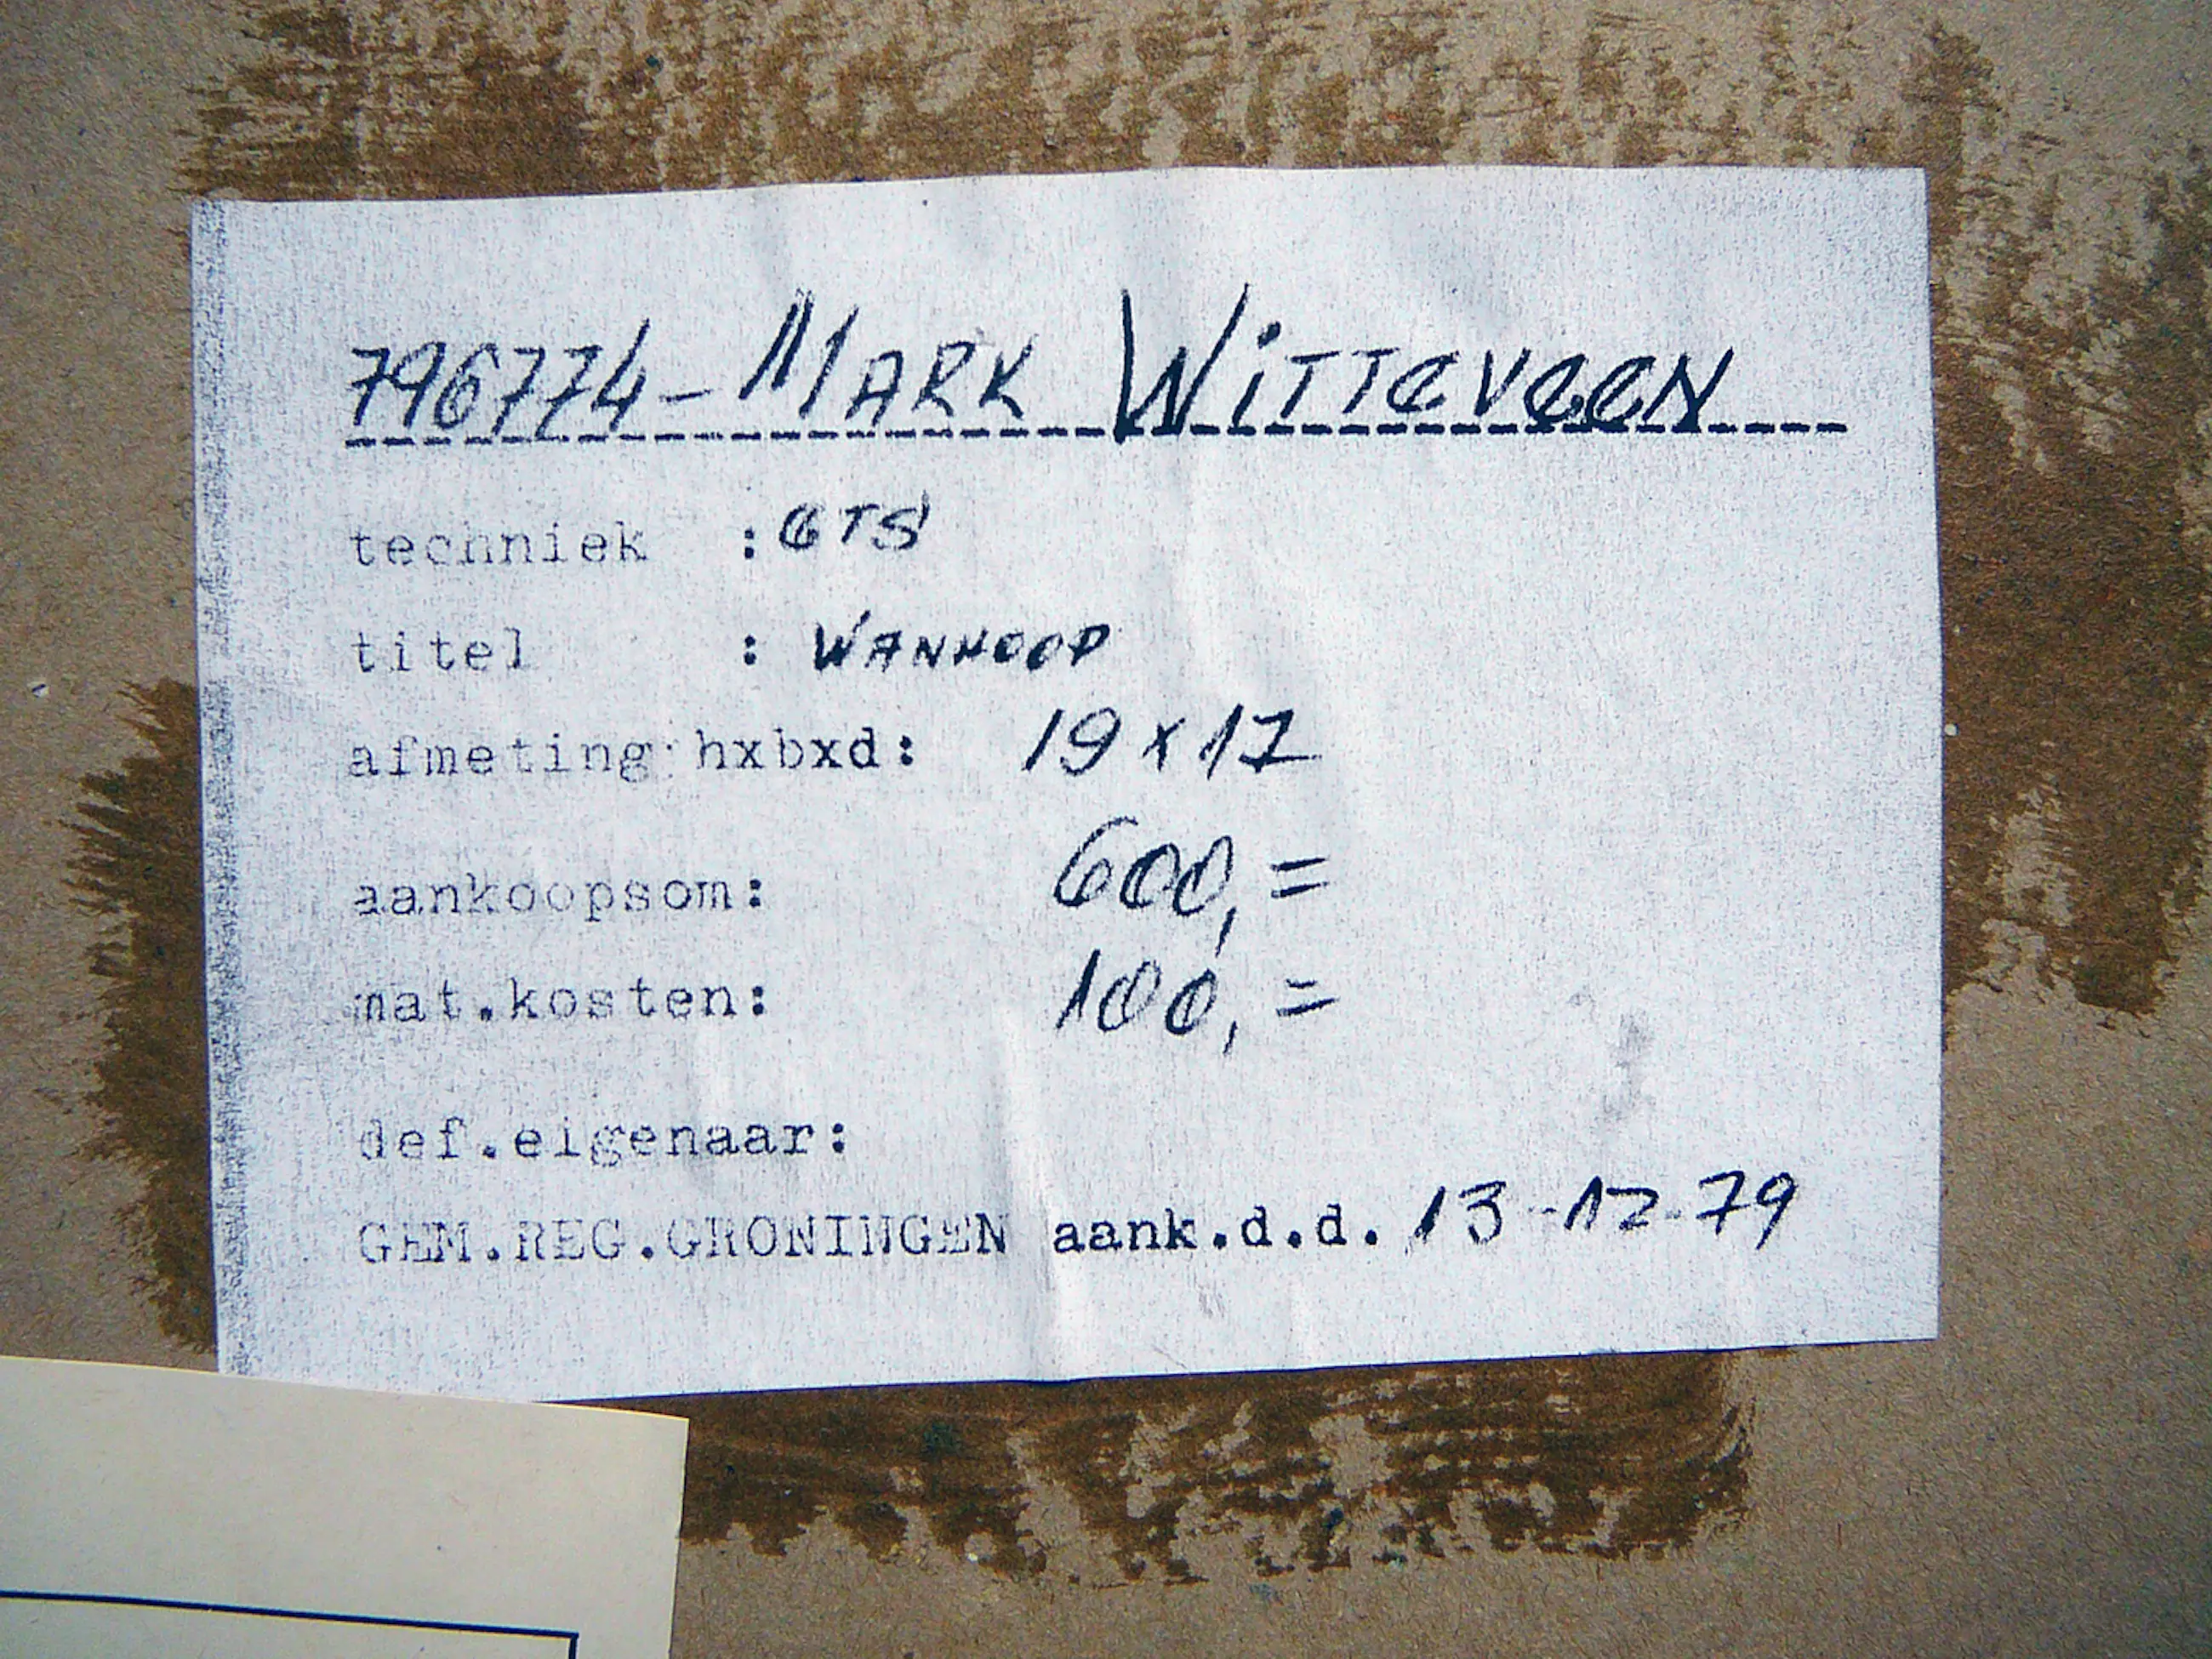 796774-MARK WITTEVEEN
techniek : ETS
titel : WANHOOP
afmeting hxbxd: 19 x 17
aankoopsom: 600,=
mat.kosten: 100,=
def.eigenaar:
GEM.REG.GRONINGEN aank.d.d. 13-12-79